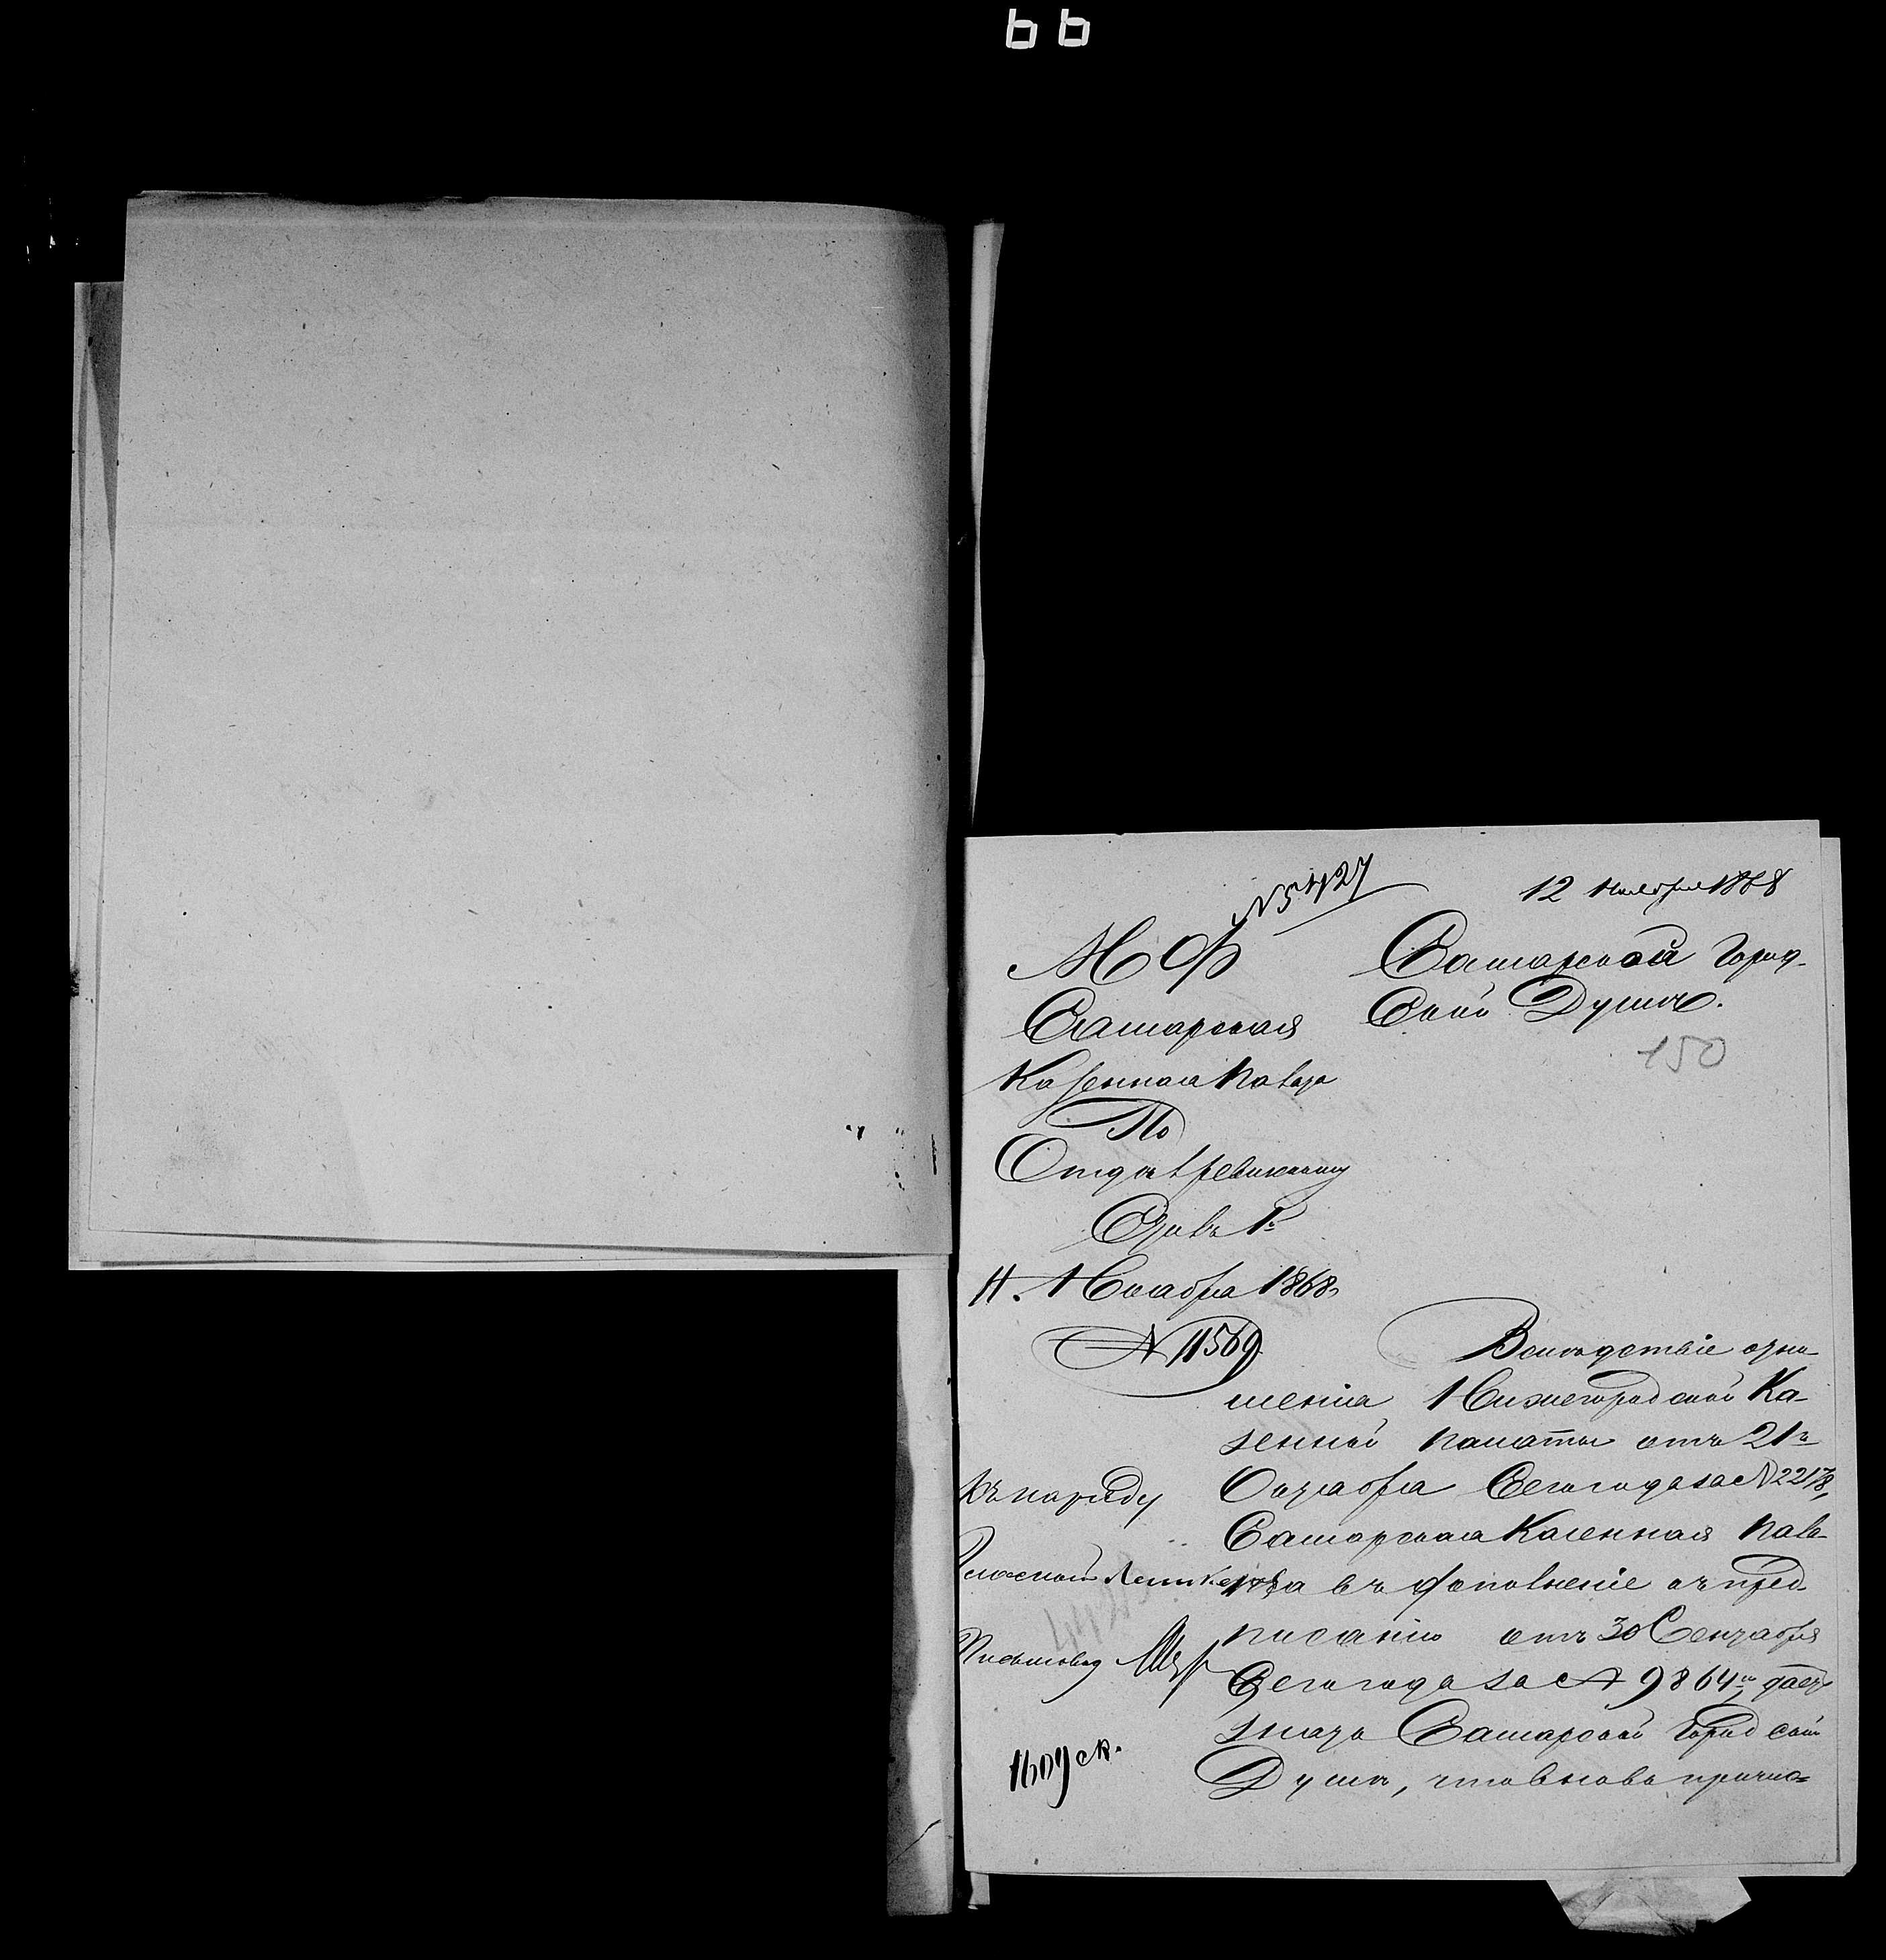 66
№ 5427
12 Ноября 1868
М Ф
Самарская
Казенная Палата
По
Отдѣл ревизскому
Столъ 1й
11. Ноября 1868
№ 11569
Самарской Город-
ской Думѣ.
150
Вслѣдствіе отно-
шенія Нижегородской Ка-
зенной палаты отъ 21го
Октября сего года за № 22178,
Самарская Казенная Пала-
та въ дополненіе къ пред-
писанію отъ 30 Сентября
Сего года за № 9864м, даетъ
знать Самарской Городской
Думѣ, что вновь причис-
Къ наряду
1609 ск.